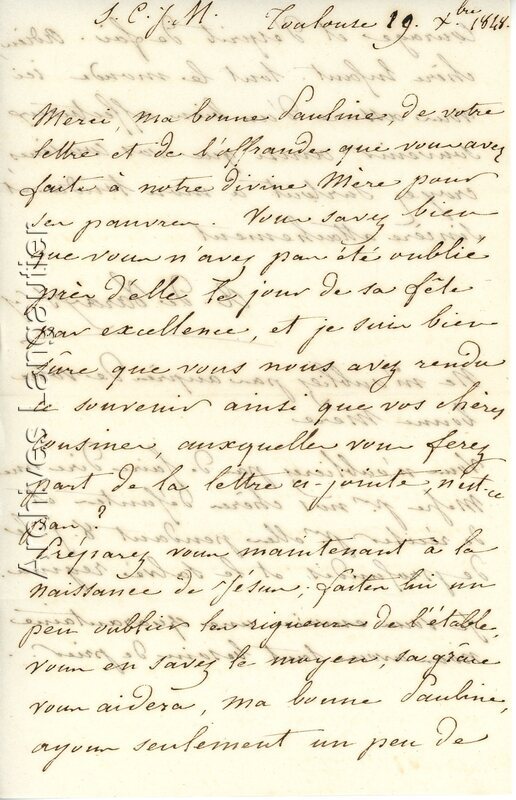 S. C. J. M. Toulouse 19 Xbre 1848.
Merci, ma bonne Pauline, de votre
lettre et de l'offrande que vous avez
faite à notre divine Mère pour
ses pauvres. Vous savez bien
que vous n'avez pas été oubliée
près d'elle le jour de sa fête
par excellence, et je suis bien
sûre que vous nous avez rendu
ce souvenir ainsi que vos chères
cousines, auxquelles vous ferez
part de la lettre ci-jointe, n'est-ce
pas ?
Préparez vous maintenant à la
naissance de Jésus, faites lui un
peu oublier les rigueurs de l'étable,
vous en savez le moyen, sa grâce
vous aidera, ma bonne Pauline,
ayons seulement un peu de
Archives Lamourier